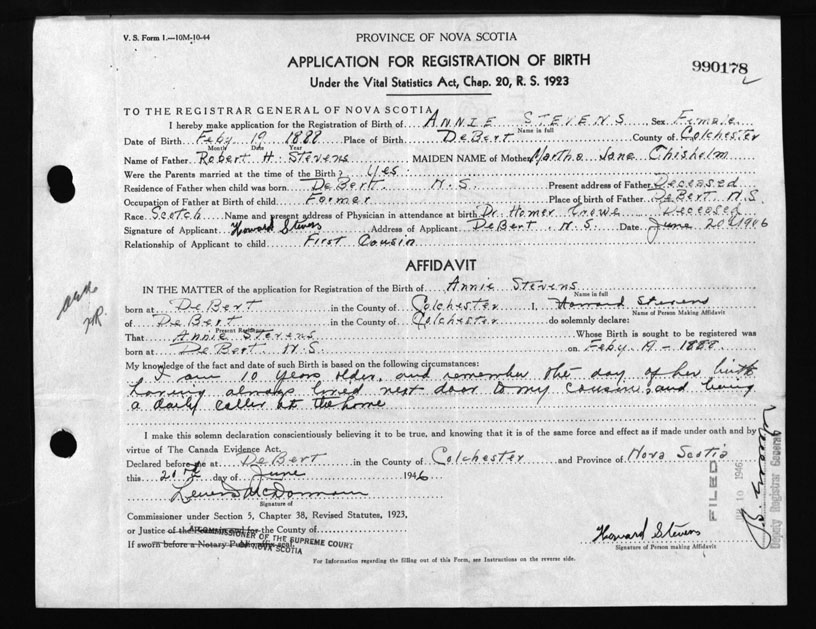 V. S. Form 1.—10M-10-44
PROVINCE OF NOVA SCOTIA
APPLICATION FOR REGISTRATION OF BIRTH
990178
Under the Vital Statistics Act, Chap. 20, R. S. 1923
TO THE REGISTRAR GENERAL OF NOVA SCOTIA
I hereby make application for the Registration of Birth of ANNIE STEVENS Sex Female
Name in full
Date of Birth Feby 19 1888 Place of Birth DeBert County of Colchester
Month Date Year
Name of Father Robert H. Stevens MAIDEN NAME of Mother Martha Jane Chisholm
Were the Parents married at the time of the Birth? Yes.
Residence of Father when child was born DeBert. N.S. Present address of Father Deceased
Occupation of Father at Birth of child Farmer Place of birth of Father DeBert N.S.
Race Scotch Name and present address of Physician in attendance at birth Dr. Homer Crowe Deceased
Signature of Applicant Howard Stevens Address of Applicant DeBert. N.S. Date June 20th 1946
Relationship of Applicant to child First Cousin
AFFIDAVIT
IN THE MATTER of the application for Registration of the Birth of Annie Stevens
Name in full
born at DeBert in the County of Colchester I, Howard Stevens
Name of Person Making Affidavit
of DeBert in the County of Colchester do solemnly declare:
Present Residence
That Annie Stevens Whose Birth is sought to be registered was
born at DeBert N.S. on Feby 19 - 1888.
My knowledge of the fact and date of such Birth is based on the following circumstances:
I am 10 years older, and remember the day of her birth
having always lived next door to my cousin, and being
a daily caller at the home
I make this solemn declaration conscientiously believing it to be true, and knowing that it is of the same force and effect as if made under oath and by
virtue of The Canada Evidence Act.
Declared before me at DeBert in the County of Colchester and Province of Nova Scotia
this 20th day of June 1946
Signature of
Commissioner under Section 5, Chapter 38, Revised Statutes, 1923,
or Justice of the Peace in and for the County of
A COMMISSIONER OF THE SUPREME COURT
OF NOVA SCOTIA
If sworn before a Notary Public affix seal.
Howard Stevens
Signature of Person making Affidavit
For Information regarding the filling out of this Form, see Instructions on the reverse side.
FILED
10 1946
Deputy Registrar General